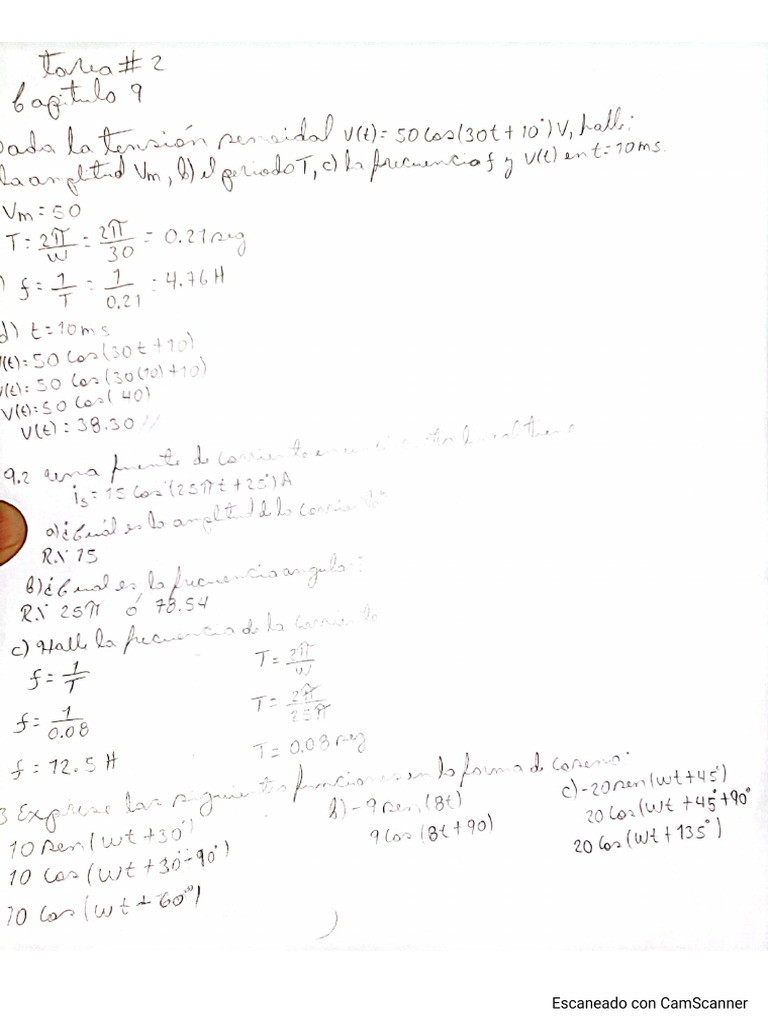 tarea # 2
Capitulo 9
Dada la tensión senoidal v(t)=50cos(30t+10°)V, halle:
la amplitud Vm, b) el periodo T, c) la frecuencia f y v(t) en t=10ms.
Vm=50
T=2π/W=2π/30=0.21seg
) f=1/T=1/0.21=4.76H
d) t=10ms
v(t)=50cos(30t+10)
v(t)=50cos(30(10)+10)
v(t)=50cos(40)
v(t)=38.30//
9.2 una fuente de corriente en un circuito lineal tiene
is=15cos(25πt+25°)A
a)¿Cuál es la amplitud de la corriente?
R.\ 15
b)¿Cual es la frecuencia angular?
R.\ 25π ó 78.54
c) Halle la frecuencia de la corriente
f=1/T T=2π/W
f=1/0.08 T=2π/25π
f=12.5H T=0.08seg
3 Exprese las siguientes funciones en la forma de coseno.
10sen(wt+30°) b)-9sen(8t) c)-20sen(wt+45°)
10cos(wt+30°-90°) 9cos(8t+90) 20cos(wt+45°+90°
10cos(wt+60°) 20cos(wt+135°)
Escaneado con CamScanner